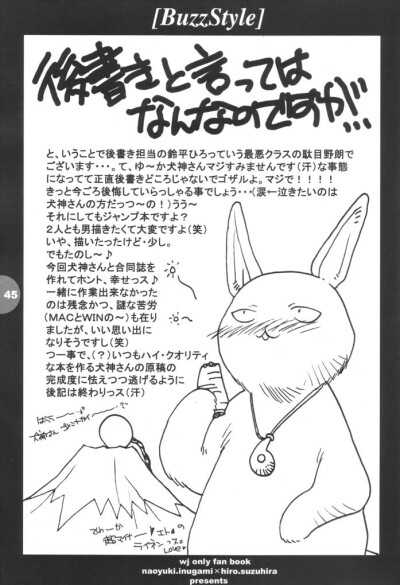 [BuzzStyle]
後書きと言っては
なんなのですが!!
と、いうことで後書き担当の鈴平ひろっていう最悪クラスの駄目野朗で
ございます・・・。て、ゆ〜か犬神さんマジすみませんです(汗)な事態
になってて正直後書きどころじゃないでゴザルよ。マジで！！！！
きっと今ごろ後悔していらっしゃる事でしょう・・・(涙←泣きたいのは
犬神さんの方だっつ〜の！)うう〜
それにしてもジャンプ本ですよ？
２人とも男描きたくて大変ですよ(笑)
いや、描いたったけど・少し。
でもたのし〜♪
今回犬神さんと合同誌を
作れてホント、幸せっス♪
一緒に作業出来なかった
のは残念かつ、謎な苦労
(MACとWINの〜)も在り
ましたが、いい思い出に
なりそうですし(笑)
つー事で、(？)いつもハイ・クオリティ
な本を作る犬神さんの原稿の
完成度に怯えつつ逃げるように
後記は終わりっス(汗)
45
ライネンっス。
LOVE♡
wj only fan book
naoyuki.inugami×hiro.suzuhira
presents